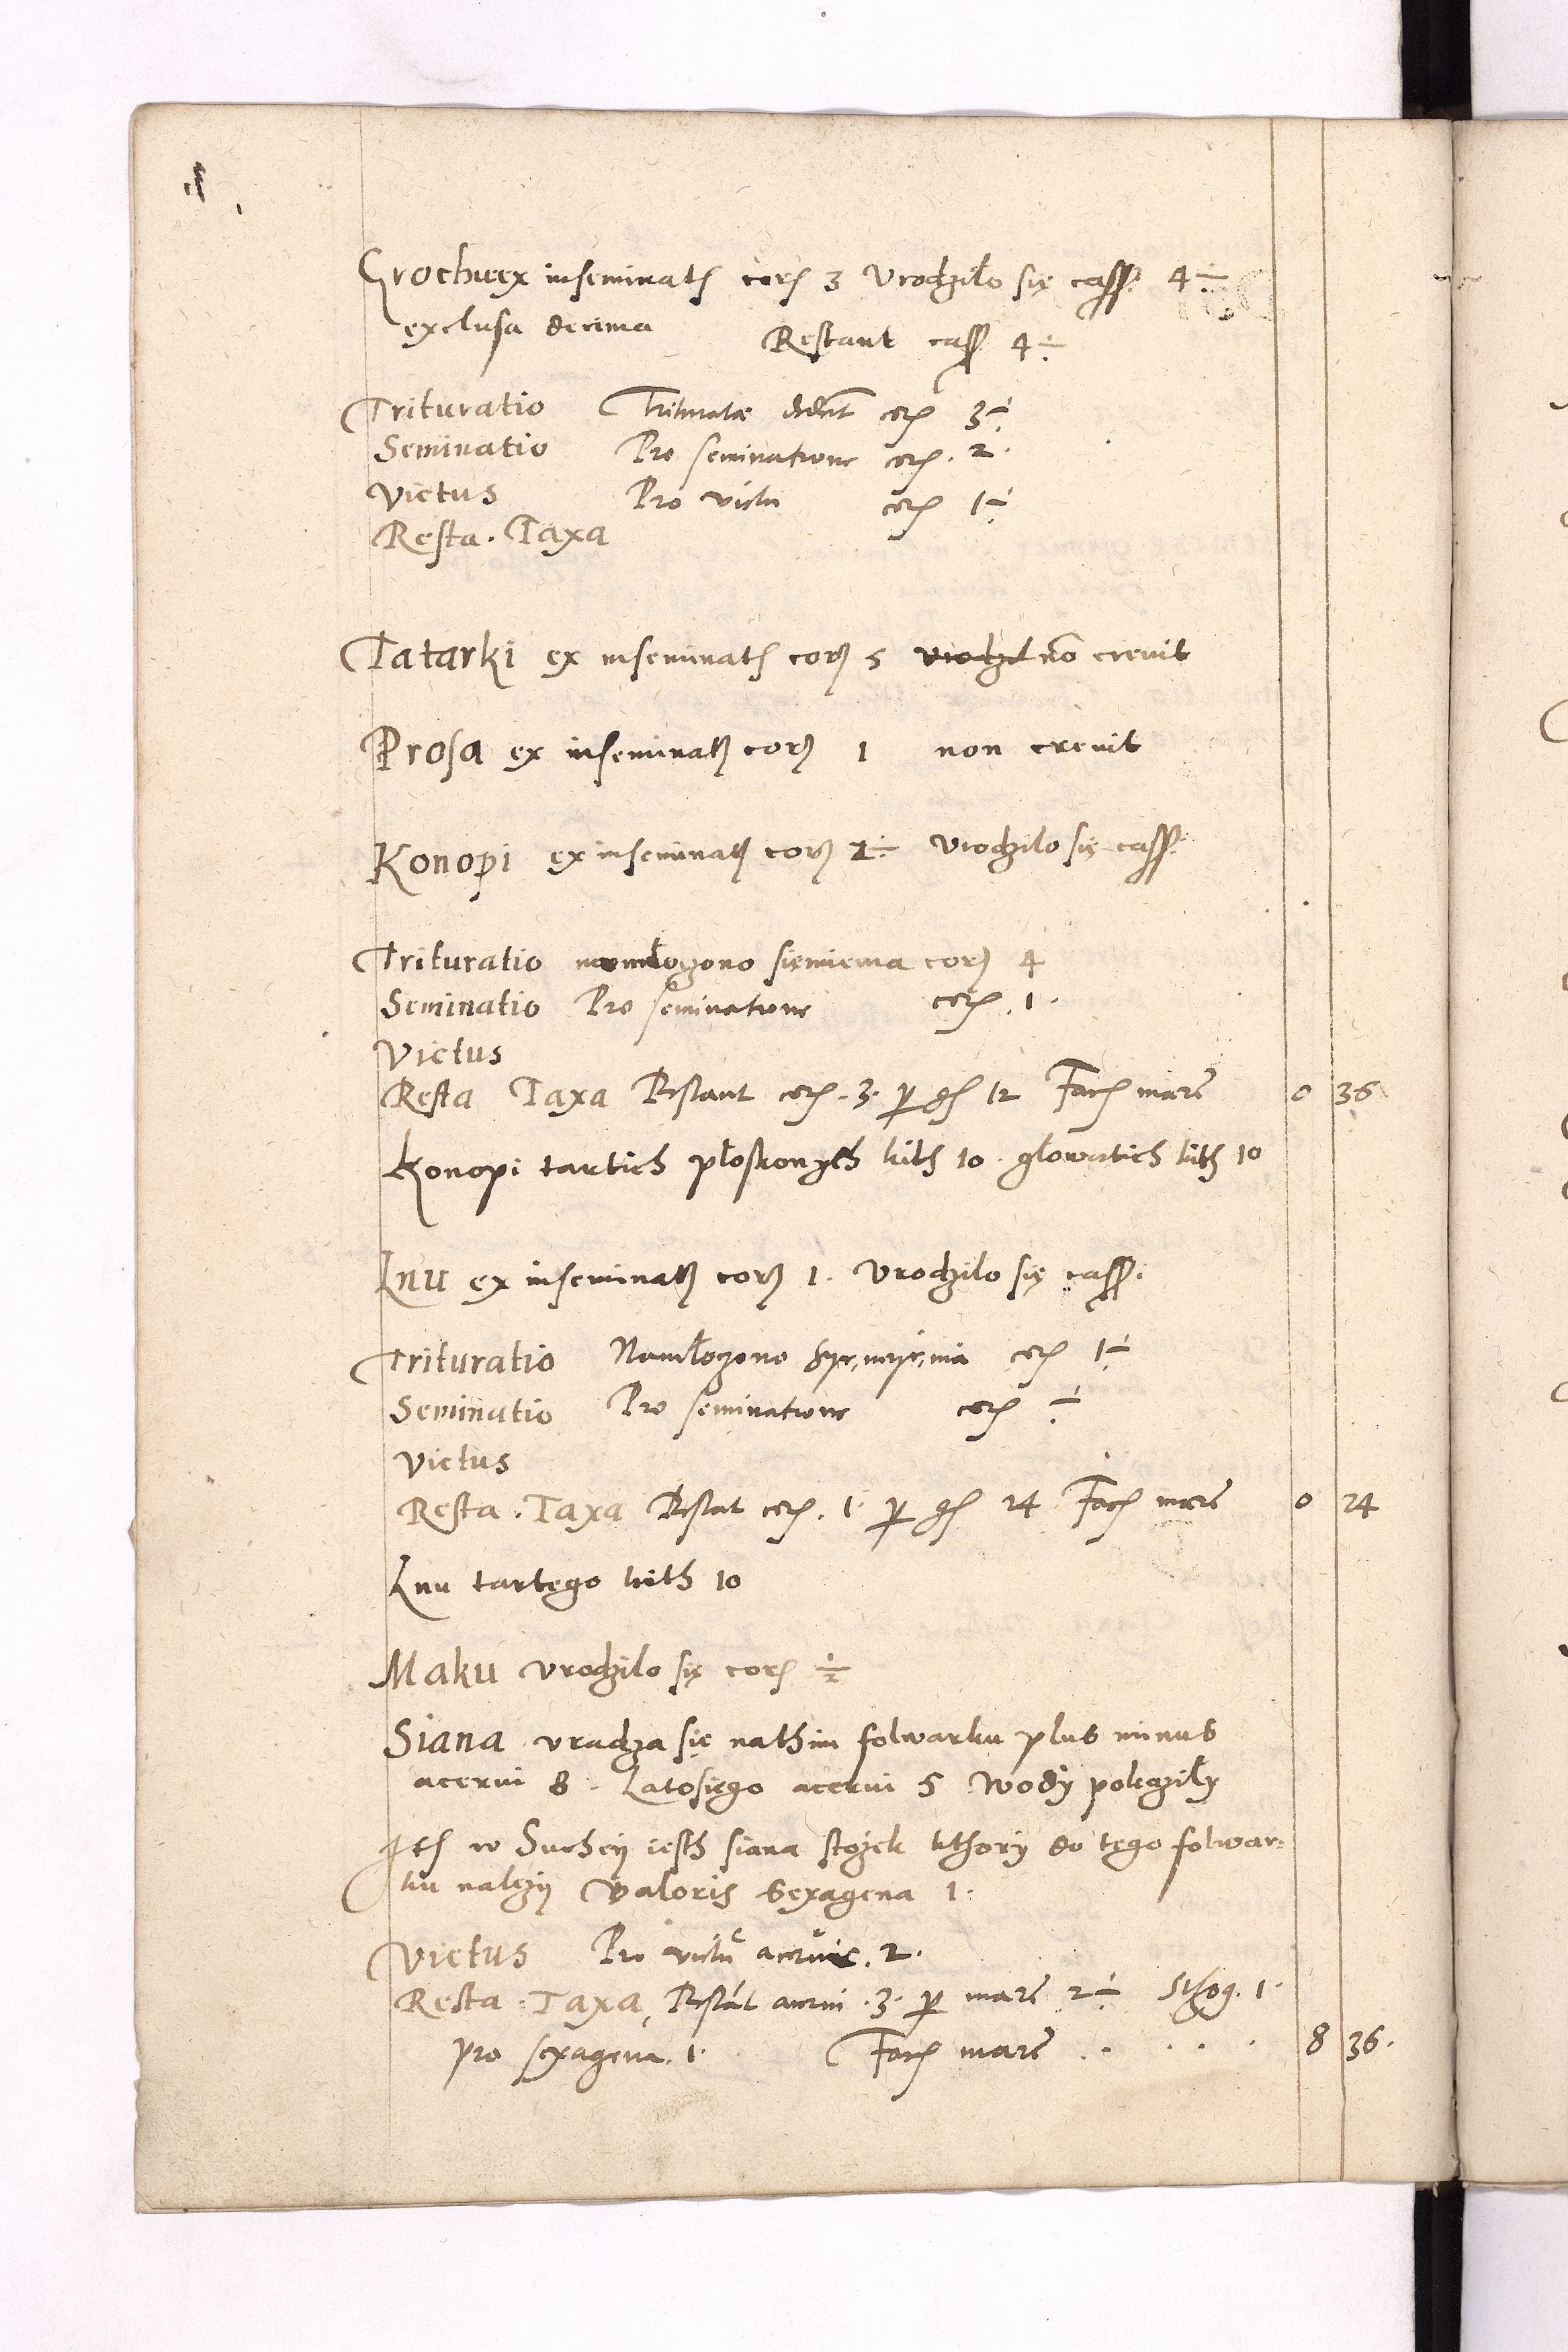 Grochu ex inseminatis coris 3 Vrodziło się cass. 4 ÷
exclusa decima Restant cass 4 ÷
Trituratio Trituratæ dederunt coros 3 ÷
Seminatio Pro seminatione coros 2.
Victus Pro victu coros 1 ÷
Resta. Taxa
Tatarki ex inseminatis coris 5 non crevit
Prosa ex inseminatis coris 1 non crevit
Konopi ex inseminatis coris ÷ Vrodziło się cass.
Trituratio namłozono siemienia coros 4
Seminatio Pro seminatione coros 1.
Victus
Resta Taxa Restant cori 3. per gros 12 Facit marc 0 36
Konopi tartich płoskonych kith 10. głowatich kith 10
Lnu ex inseminatis coris 1. Vrodziło się cass.
Trituratio Namłozono coros 1 ÷
Seminatio Pro seminatione coros ÷
Victus
Resta. Taxa Restat corus 1. per gros 24 Facit marc 0 24
Lnu tartego kith 10
Maku vrodziło się cori ½
Siana vradza się nathim folwarku plus minus
acervi 8. Latosiego acervi 5 Wody
Item w Suchey iesth siana stożek kthory do tego folwar=
ku należy Valoris sexagena 1.
Victus Pro victu acervi 2.
Resta. Taxa, Restant acervi 3. per marc 2 ÷ Sthog. 1.
pro sexagena. 1. Facit marc . . . . . 8 36.